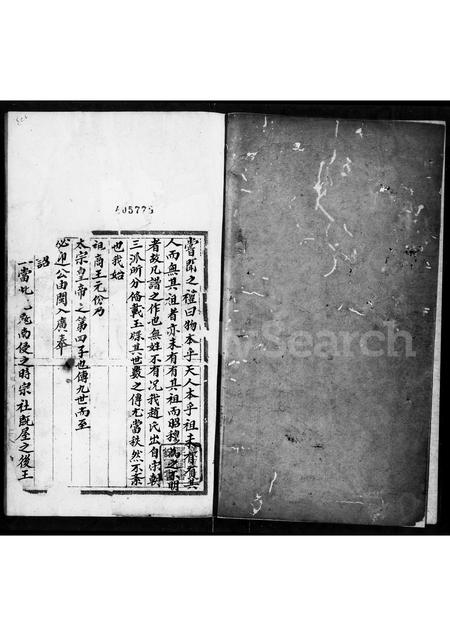 405775
嘗聞之禮曰物本乎天人本乎祖未有有其
人而無其祖者亦未有有其祖而昭穆之不明
者故凡譜之作也無姓不有况我趙氏出自宋朝
三派所分俻載玉牒其世數之傳尤當秩然不紊
也我始
祖商王元份乃
太宗皇帝之第四子也傳九世而至
必迎公由閩入廣奉
詔
南使之時宗社既屋之後王
Search